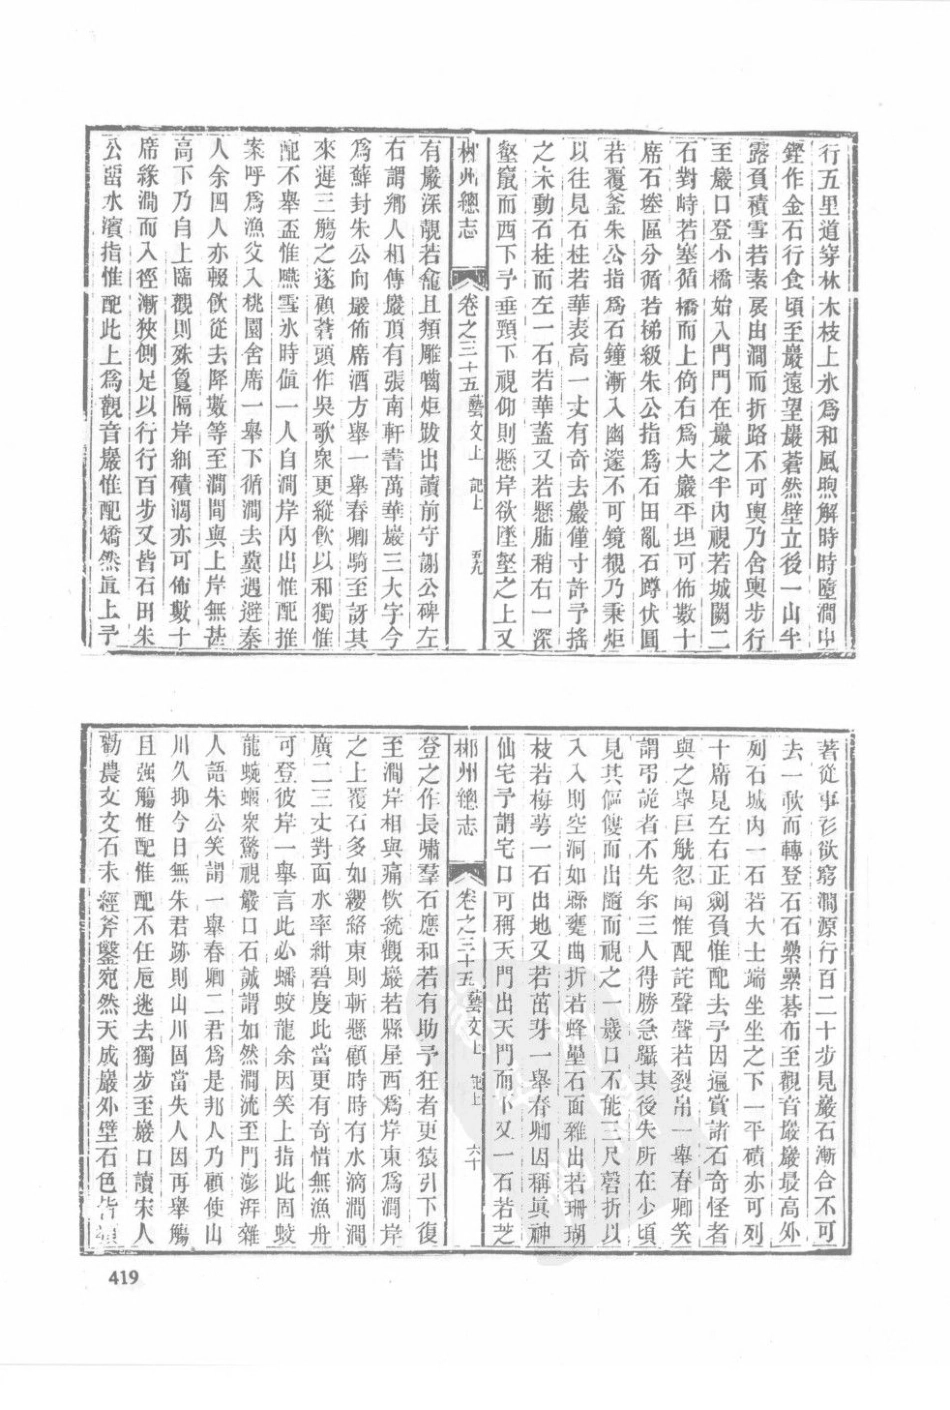 行五里道穿林木枝上氷爲和風煦解時時墮澗中
鏗作金石行食頃至巖遠望巖蒼然壁立後一山半
露負積雪若素扆由澗而折路不可輿乃舍輿步行
至巖口登小橋始入門門在巖之半內視若城闕二
石對峙若塞循橋而上倚右爲大巖平坦可佈數十
席石塍區分循若梯級朱公指爲石田亂石蹲伏圓
若覆釜朱公指爲石鐘漸入幽邃不可鏡覩乃秉炬
以往見石柱若華表高一丈有奇去巖僅寸許予搖
之未動石柱而左一石若華蓋又若懸肺稍右一深
壑竄而西下予垂頸下視仰則懸岸欲墜壑之上又
郴州總志 卷之三十五藝文上 記上 五九
有巖深靚若龕且類雕嚙炬跋出讀前守謝公碑左
右謂鄉人相傳巖頂有張南軒書萬華巖三大字今
爲蘚封朱公向巖佈席酒方舉一舉春卿騎至訝其
來遲三觴之遂顧蒼頭作吳歌衆更縱飲以和獨惟
配不舉盃惟嚥雪氷時値一人自澗岸內出惟配推
案呼爲漁父入桃園舍席一舉下循澗去冀遇避秦
人余四人亦輟飲從去降數等至澗間與上岸無甚
高下乃自上臨觀則殊敻隔岸細磧濶亦可佈數十
席緣澗而入徑漸狹側足以行行百步又皆石田朱
公畱水濱指惟配此上爲觀音巖惟配矯然直上予
著從事衫欲窮澗源行百二十步見巖石漸合不可
去一欹而轉登石石櫐櫐碁布至觀音巖巖最高外
列石城內一石若大士端坐坐之下一平磧亦可列
十席見左右正劔負惟配去予因遍賞諸石奇怪者
與之舉巨觥忽聞惟配詫聲聲若裂帛一舉春卿笑
謂弔詭者不先余三人得勝急躡其後失所在少頃
見其傴僂而出隨而視之一巖口不能三尺磬折以
入入則空洞如甒甕曲折若蜂壘石面雜出若珊瑚
枝若梅萼一石出地又若茁芽一舉春卿因稱眞神
仙宅予謂宅口可稱天門出天門而下又一石若芝
郴州總志 卷之三十五藝文上 記上 六十
登之作長嘯羣石應和若有助予狂者更猿引下復
至澗岸相與痛飲統觀巖若縣屋西爲岸東爲澗岸
之上覆石多如纓絡東則斬懸顧時時有水滴澗澗
廣二三丈對面水率紺碧度此當更有奇惜無漁舟
可登彼岸一舉言此必蟠蛟龍余因笑上指此固蛟
龍蜿蟺衆驚視巖口石誠謂如然澗流至門澎湃雜
人語朱公笑謂一舉春卿二君爲是邦人乃顧使山
川久抑今日無朱君跡則山川固當失人因再舉觴
且強觴惟配惟配不任巵逃去獨步至巖口讀宋人
勸農文文石未經斧鑿宛然天成巖外壁石色皆
419